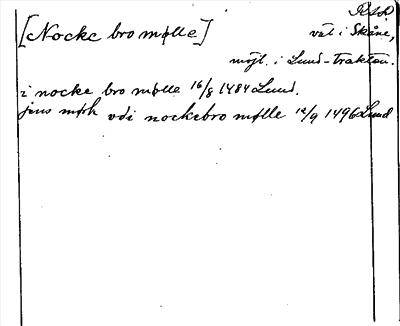 [Nocke bro mølle]
vat i Skåne,
möjl. i Lund-trakten.
i nocke bro mølle 16/8 1484 Lund.
jens mørk vdi nockebro mølle 12/9 1496 Lund